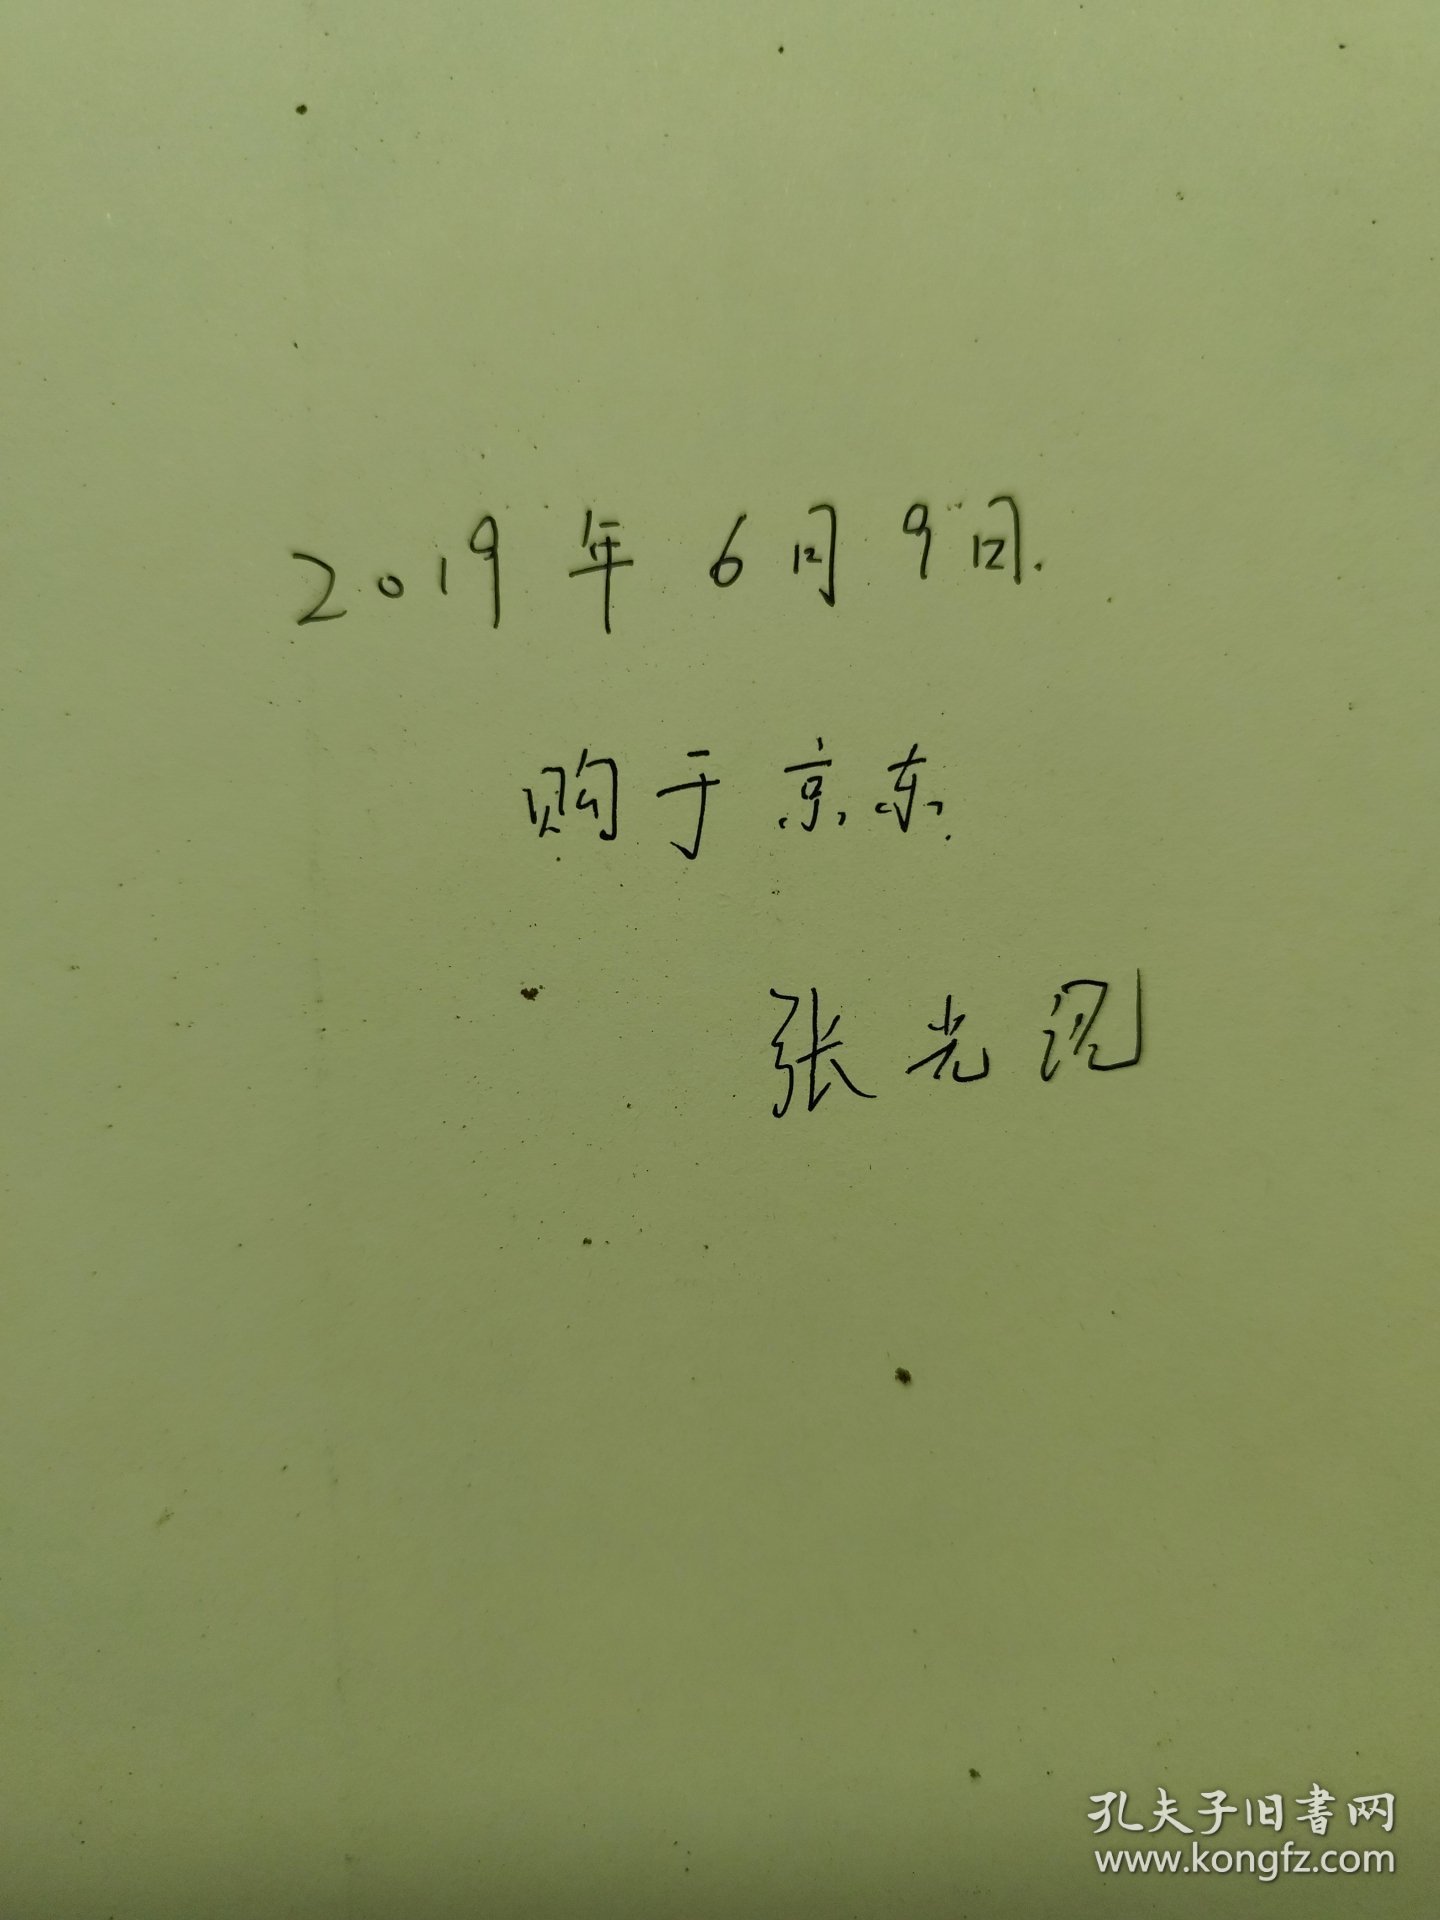 2019年6月9日.
购于京东.
张光
孔夫子旧書网
www.kongfz.com